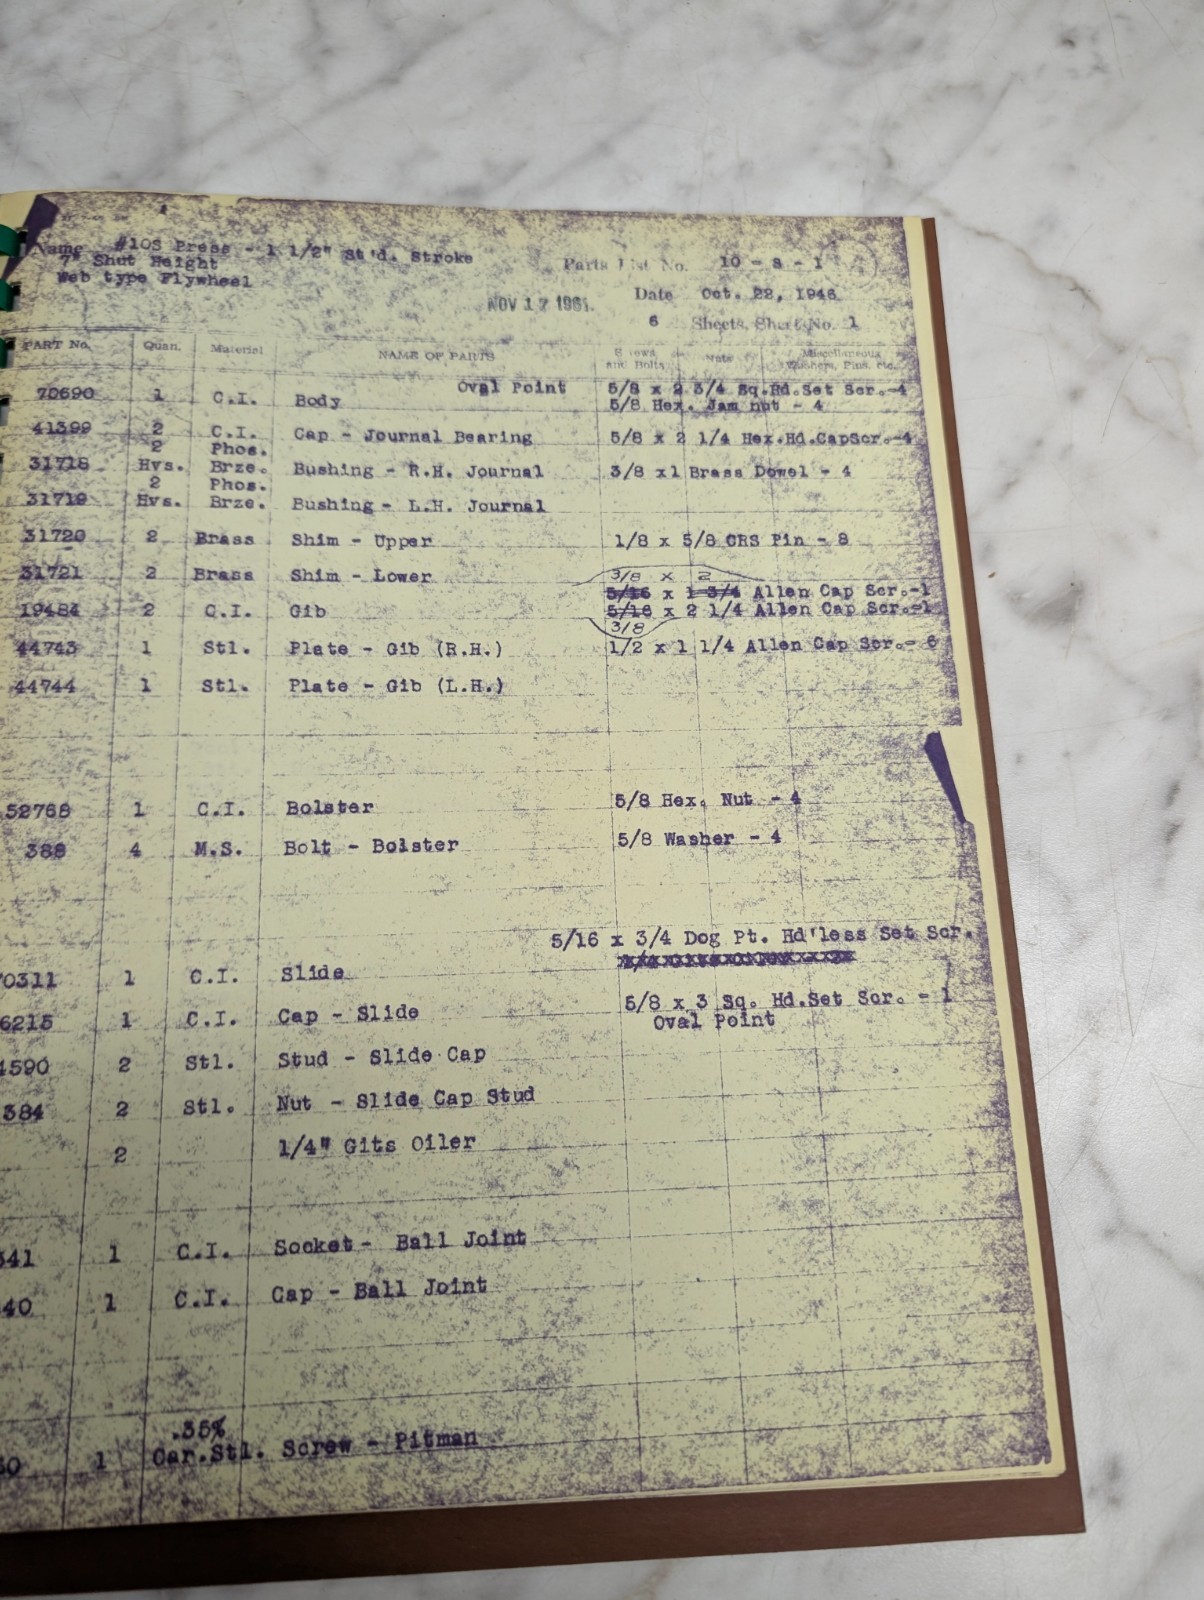 Name #10S Press - 1 1/2" St'd. Stroke
7" Shut Height
Web type Flywheel
Parts List No. 10 - S - 1
NOV 17 1961
Date Oct. 22, 1946
6 Sheets, Sheet No. 1
PART No. Quan. Material NAME OF PARTS Screws and Bolts Nuts Miscellaneous Washers, Pins, etc.
70690 1 C.I. Body Oval Point 5/8 x 2 3/4 Sq.Hd.Set Scr.-4
5/8 Hex. Jam nut - 4
41399 2 C.I. Cap - Journal Bearing 5/8 x 2 1/4 Hex.Hd.CapScr.-4
31718 2 Hvs. Phos. Brze. Bushing - R.H. Journal 3/8 x1 Brass Dowel - 4
31719 2 Hvs. Phos. Brze. Bushing - L.H. Journal
31720 2 Brass Shim - Upper 1/8 x 5/8 CRS Pin - 8
31721 2 Brass Shim - Lower
3/8 x 2
5/16 x 1 3/4 Allen Cap Scr.-1
19484 2 C.I. Gib 5/16 x 2 1/4 Allen Cap Scr.-1
3/8
44743 1 Stl. Plate - Gib (R.H.) 1/2 x 1 1/4 Allen Cap Scr.- 6
44744 1 Stl. Plate - Gib (L.H.)
52768 1 C.I. Bolster 5/8 Hex. Nut - 4
388 4 M.S. Bolt - Bolster 5/8 Washer - 4
5/16 x 3/4 Dog Pt. Hd'less Set Scr.
0311 1 C.I. Slide
6215 1 C.I. Cap - Slide 5/8 x 3 Sq. Hd.Set Scr. - 1
Oval Point
4590 2 Stl. Stud - Slide Cap
384 2 Stl. Nut - Slide Cap Stud
2 1/4" Gits Oiler
341 1 C.I. Socket - Ball Joint
40 1 C.I. Cap - Ball Joint
.35%
30 1 Car.Stl. Screw - Pitman